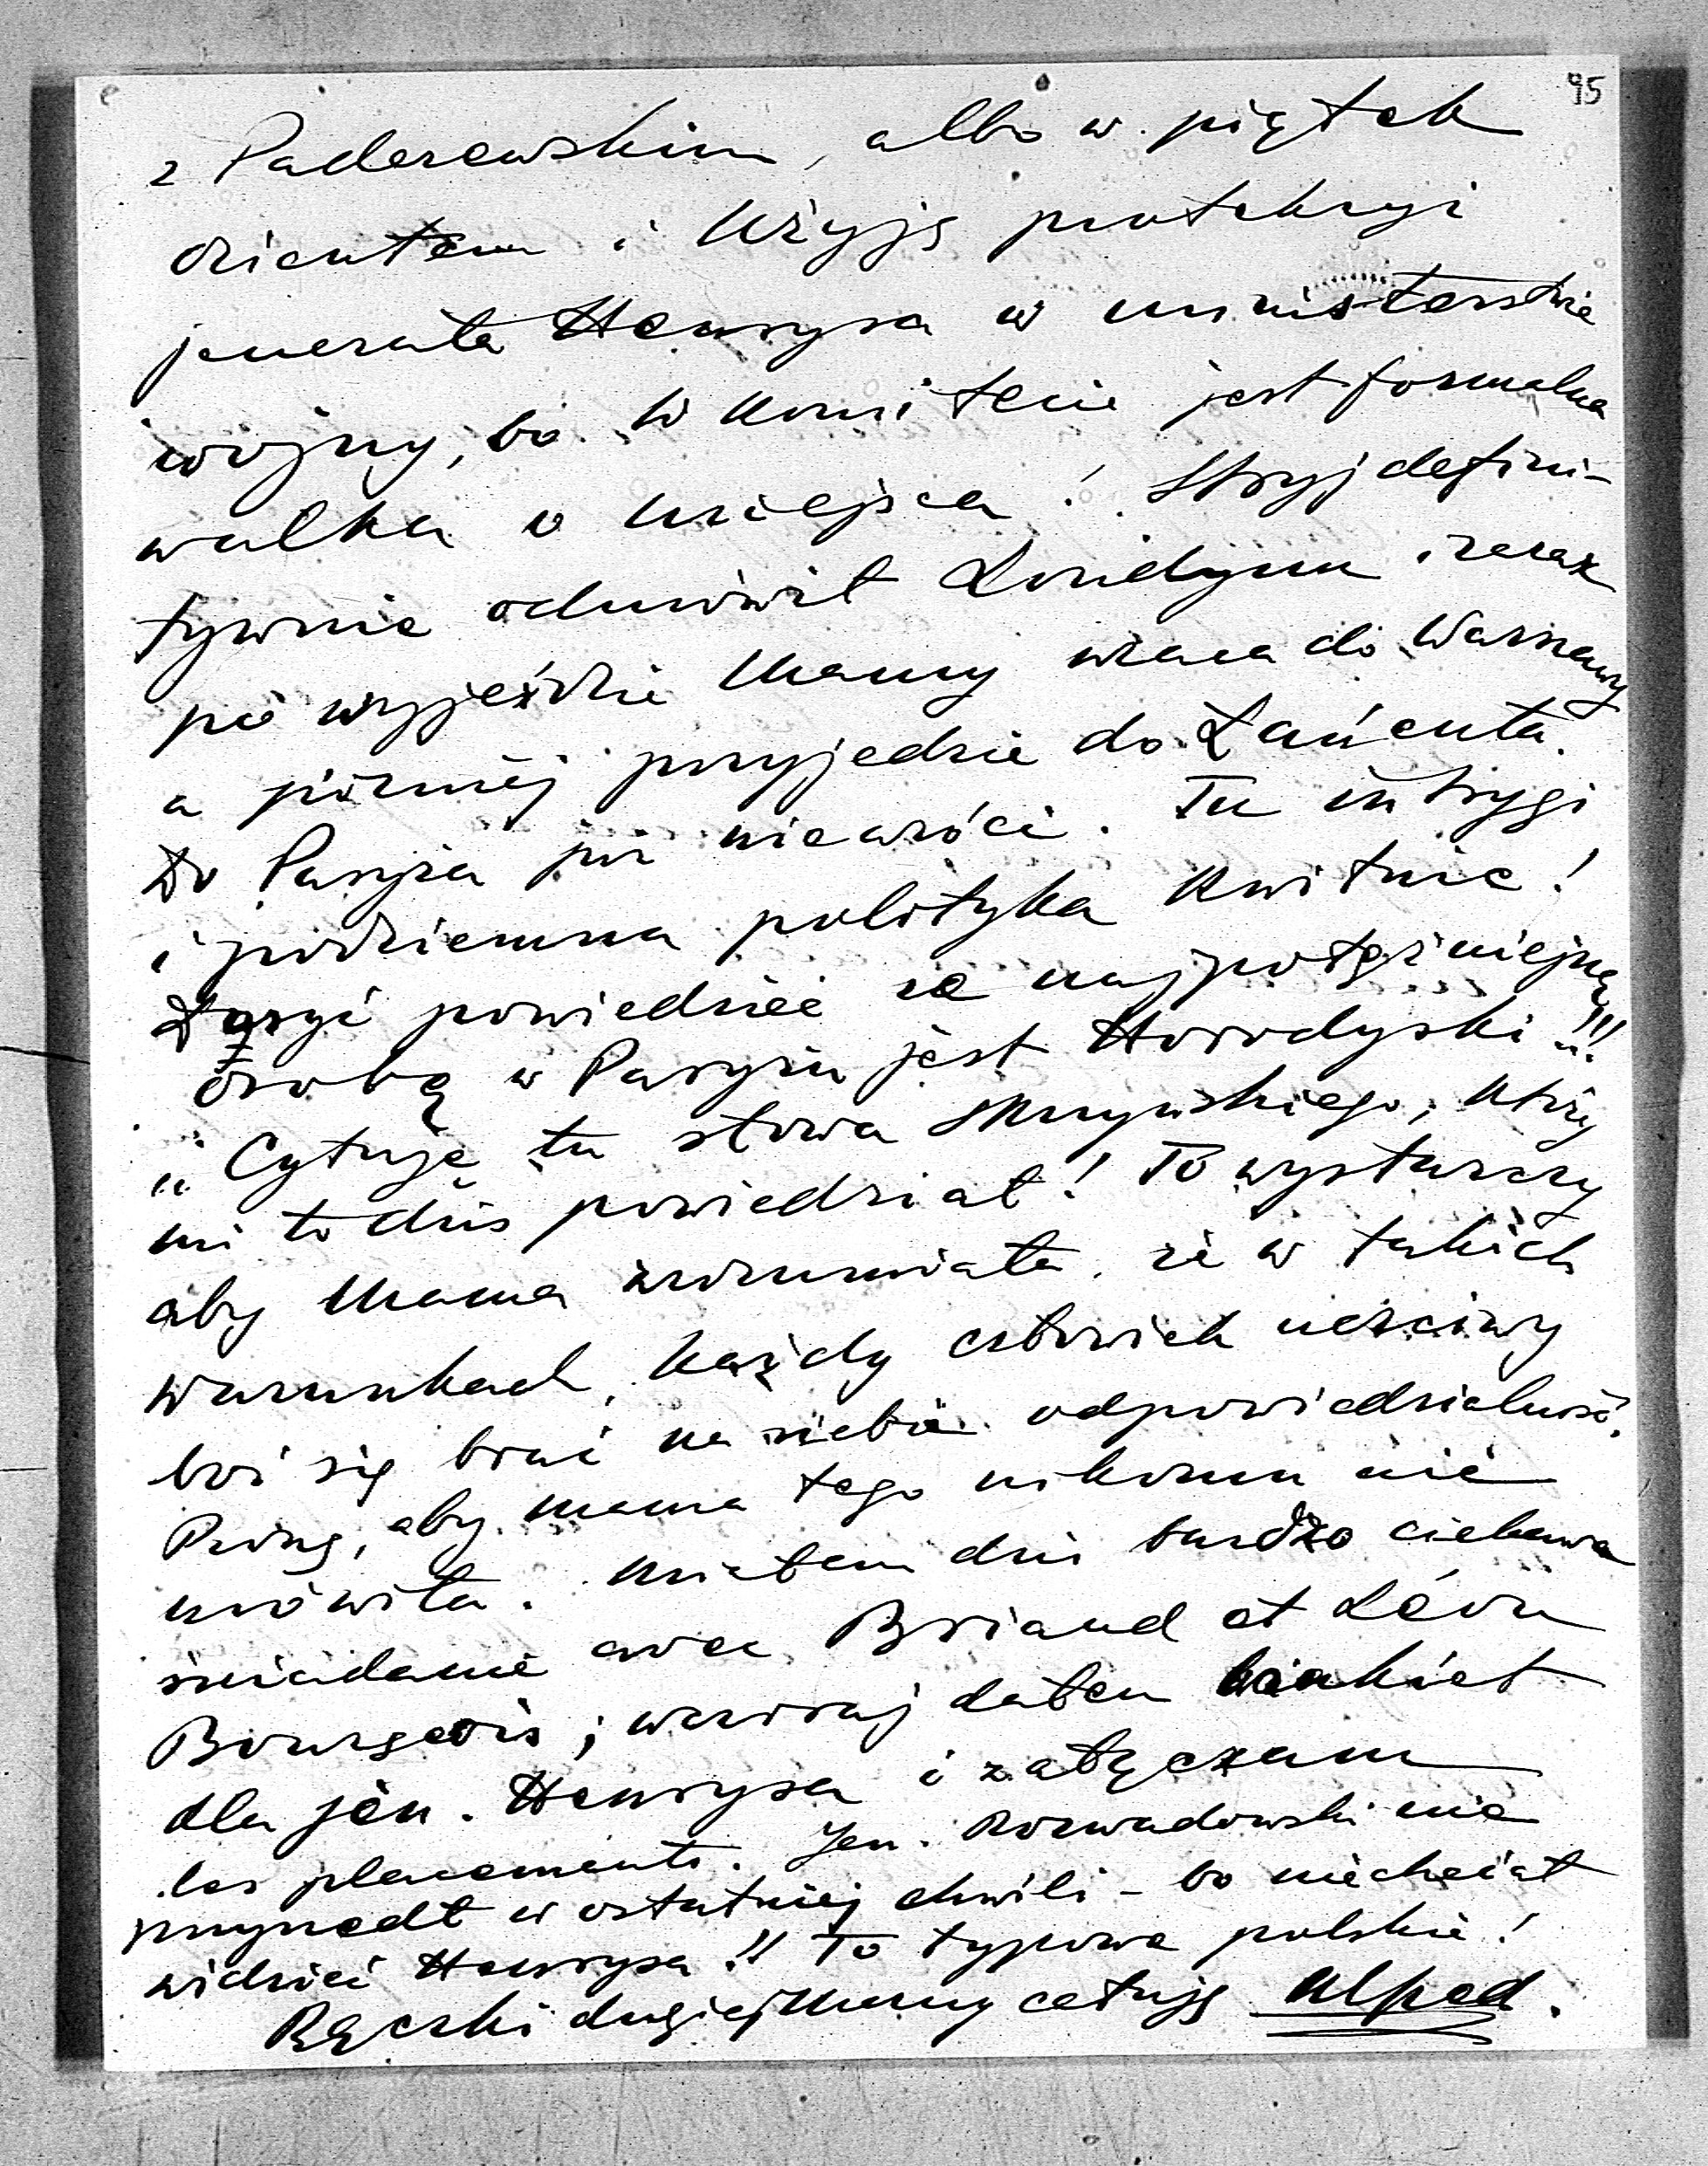 95
z Paderewskim, albo w piątek
orientem i użyję protekcyi
jenerała Henrysa w ministerstwie
wojny, bo w komitecie jest formalna
walka o miejsca! Stryj defini-
tywnie odmówił Londynu i zaraz
po wyjeździe Mamy wraca do Warszawy
a później przyjedzie do Łańcuta.
Do Paryża już nie wróci. Tu intrygi
i podziemna polityka kwitnie!
Dosyć powiedzieć że najpotężniejszą
osobą w Paryżu jest Horodyski!!!
Cytuję tu słowa Skrzyńskiego, który
mi to dziś powiedział! To wystarczy
aby Mama zrozumiała, że w takich
warunkach, każdy człowiek uczciwy
boi się brać na siebie odpowiedzialność.
Proszę, aby Mama tego nikomu nie
mówiła. Miałem dziś bardzo ciekawe
śniadanie avec Briand et Léon
Bourgeois; wczoraj dałem bankiet
dla jen. Henrysa i załączam
les placements. Jen. Rozwadowski nie
przyszedł w ostatniej chwili - bo nie chciał
widzieć Henrysa!! To typowe polskie!
Rączki drogiej Mamy całuję Alfred.